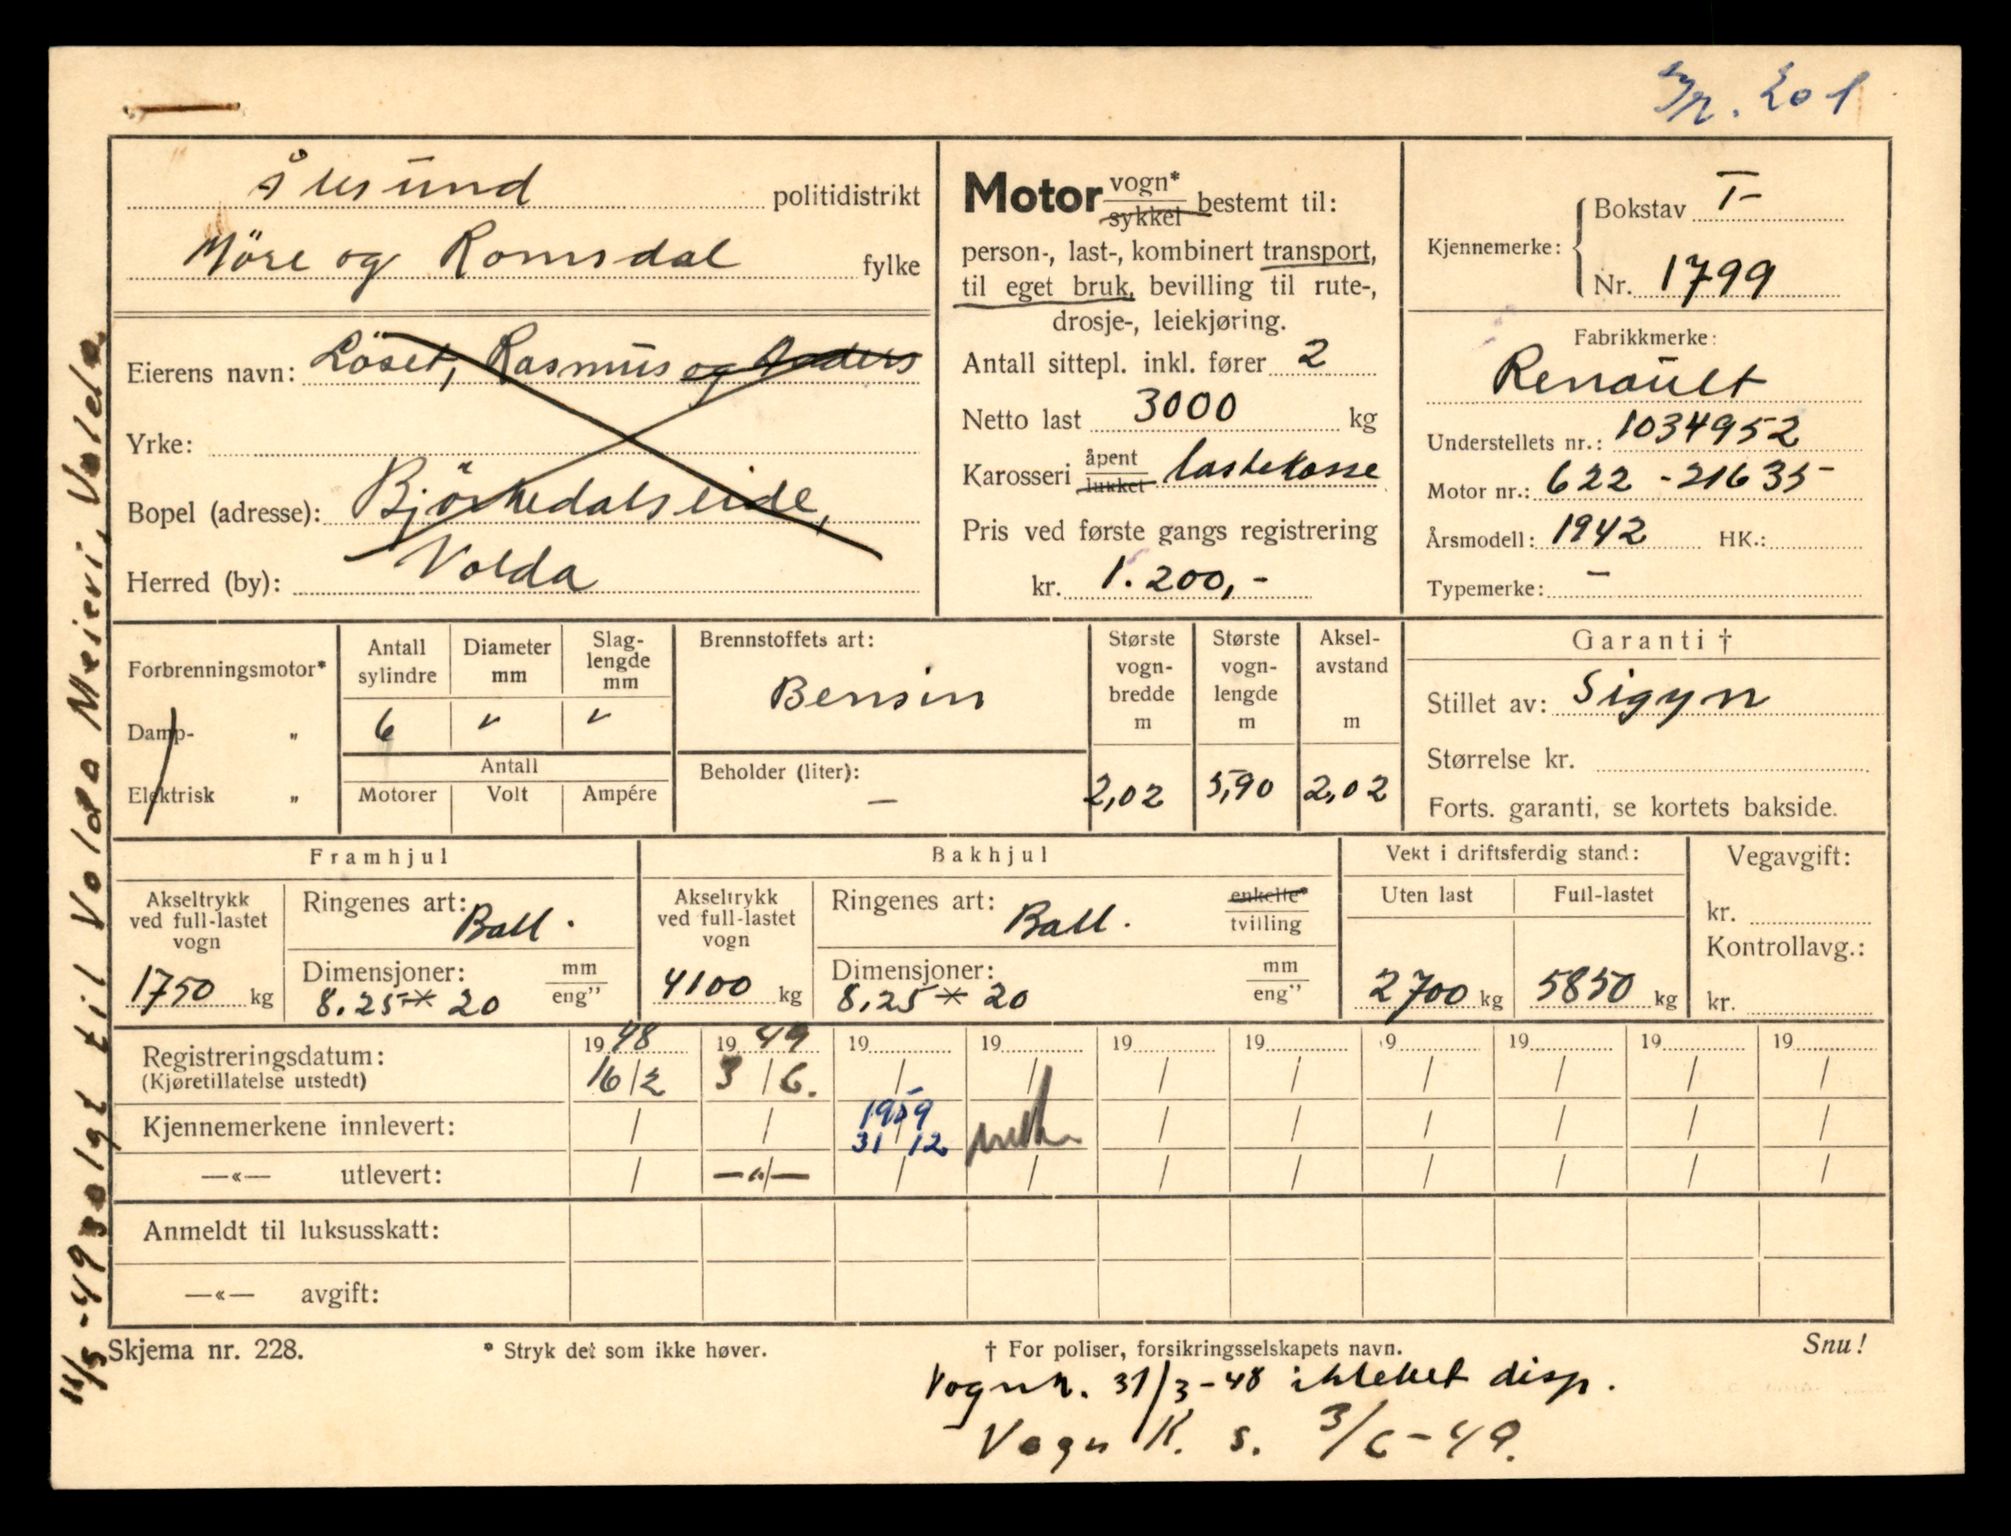 Nr. 201
Ålesund politidistrikt
Möre og Romsdal fylke
Eierens navn: Löset, Rasmus og Anders
Yrke:
Bopel (adresse): Björkedalseide,
Herred (by): Volda
Motor vogn* sykkel bestemt til:
person-, last-, kombinert transport,
til eget bruk, bevilling til rute-,
drosje-, leiekjøring.
Antall sittepl. inkl. fører 2
Netto last 3000 kg
Karosseri åpent lukket lastekasse
Pris ved første gangs registrering
kr. 1.200,-
Kjennemerke: Bokstav T-
Nr. 1799
Fabrikkmerke:
Renault
Understellets nr.: 1034952
Motor nr.: 622 - 21635
Årsmodell: 1942 HK.:
Typemerke: —
Forbrenningsmotor*
Damp- „
Elektrisk „
Antall sylindre 6
Diameter mm "
Slaglengde mm "
Antall
Motorer Volt Ampére
Brennstoffets art:
Bensin
Beholder (liter):
—
Største vognbredde m 2,02
Største vognlengde m 5,90
Akselavstand m 2,02
Garanti †
Stillet av: Sigyn
Størrelse kr.
Forts. garanti, se kortets bakside.
Framhjul
Akseltrykk ved full-lastet vogn 1750 kg
Ringenes art: Ball.
Dimensjoner: 8.25 x 20 mm eng"
Bakhjul
Akseltrykk ved full-lastet vogn 4100 kg
Ringenes art: Ball. enkelte* tvilling
Dimensjoner: 8,25 x 20 mm eng"
Vekt i driftsferdig stand:
Uten last Full-lastet
2700 kg 5850 kg
Vegavgift:
kr.
Kontrollavg.:
kr.
Registreringsdatum: 1948 1949 19 19 19 19 19 19 19 19
(Kjøretillatelse utstedt) 16/2 3/6. / / / / / / / /
Kjennemerkene innlevert: / / 1959 31/12 / / / / / /
—«— utlevert: / —"/— / / / / / / / /
Anmeldt til luksusskatt:
—«— avgift:
Skjema nr. 228.
* Stryk det som ikke høver.
† For poliser, forsikringsselskapets navn.
Snu!
Vognk. 31/3-48 ikteket disp.
Vogn K. s. 3/6-49.
11/5-49 solgt til Volda Meieri, Volda.